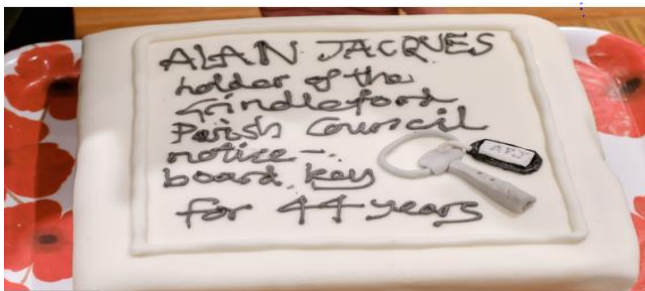 ALAN JACQUES
holder of the
Grindleford
Parish Council
notice-
board key
for 44 years